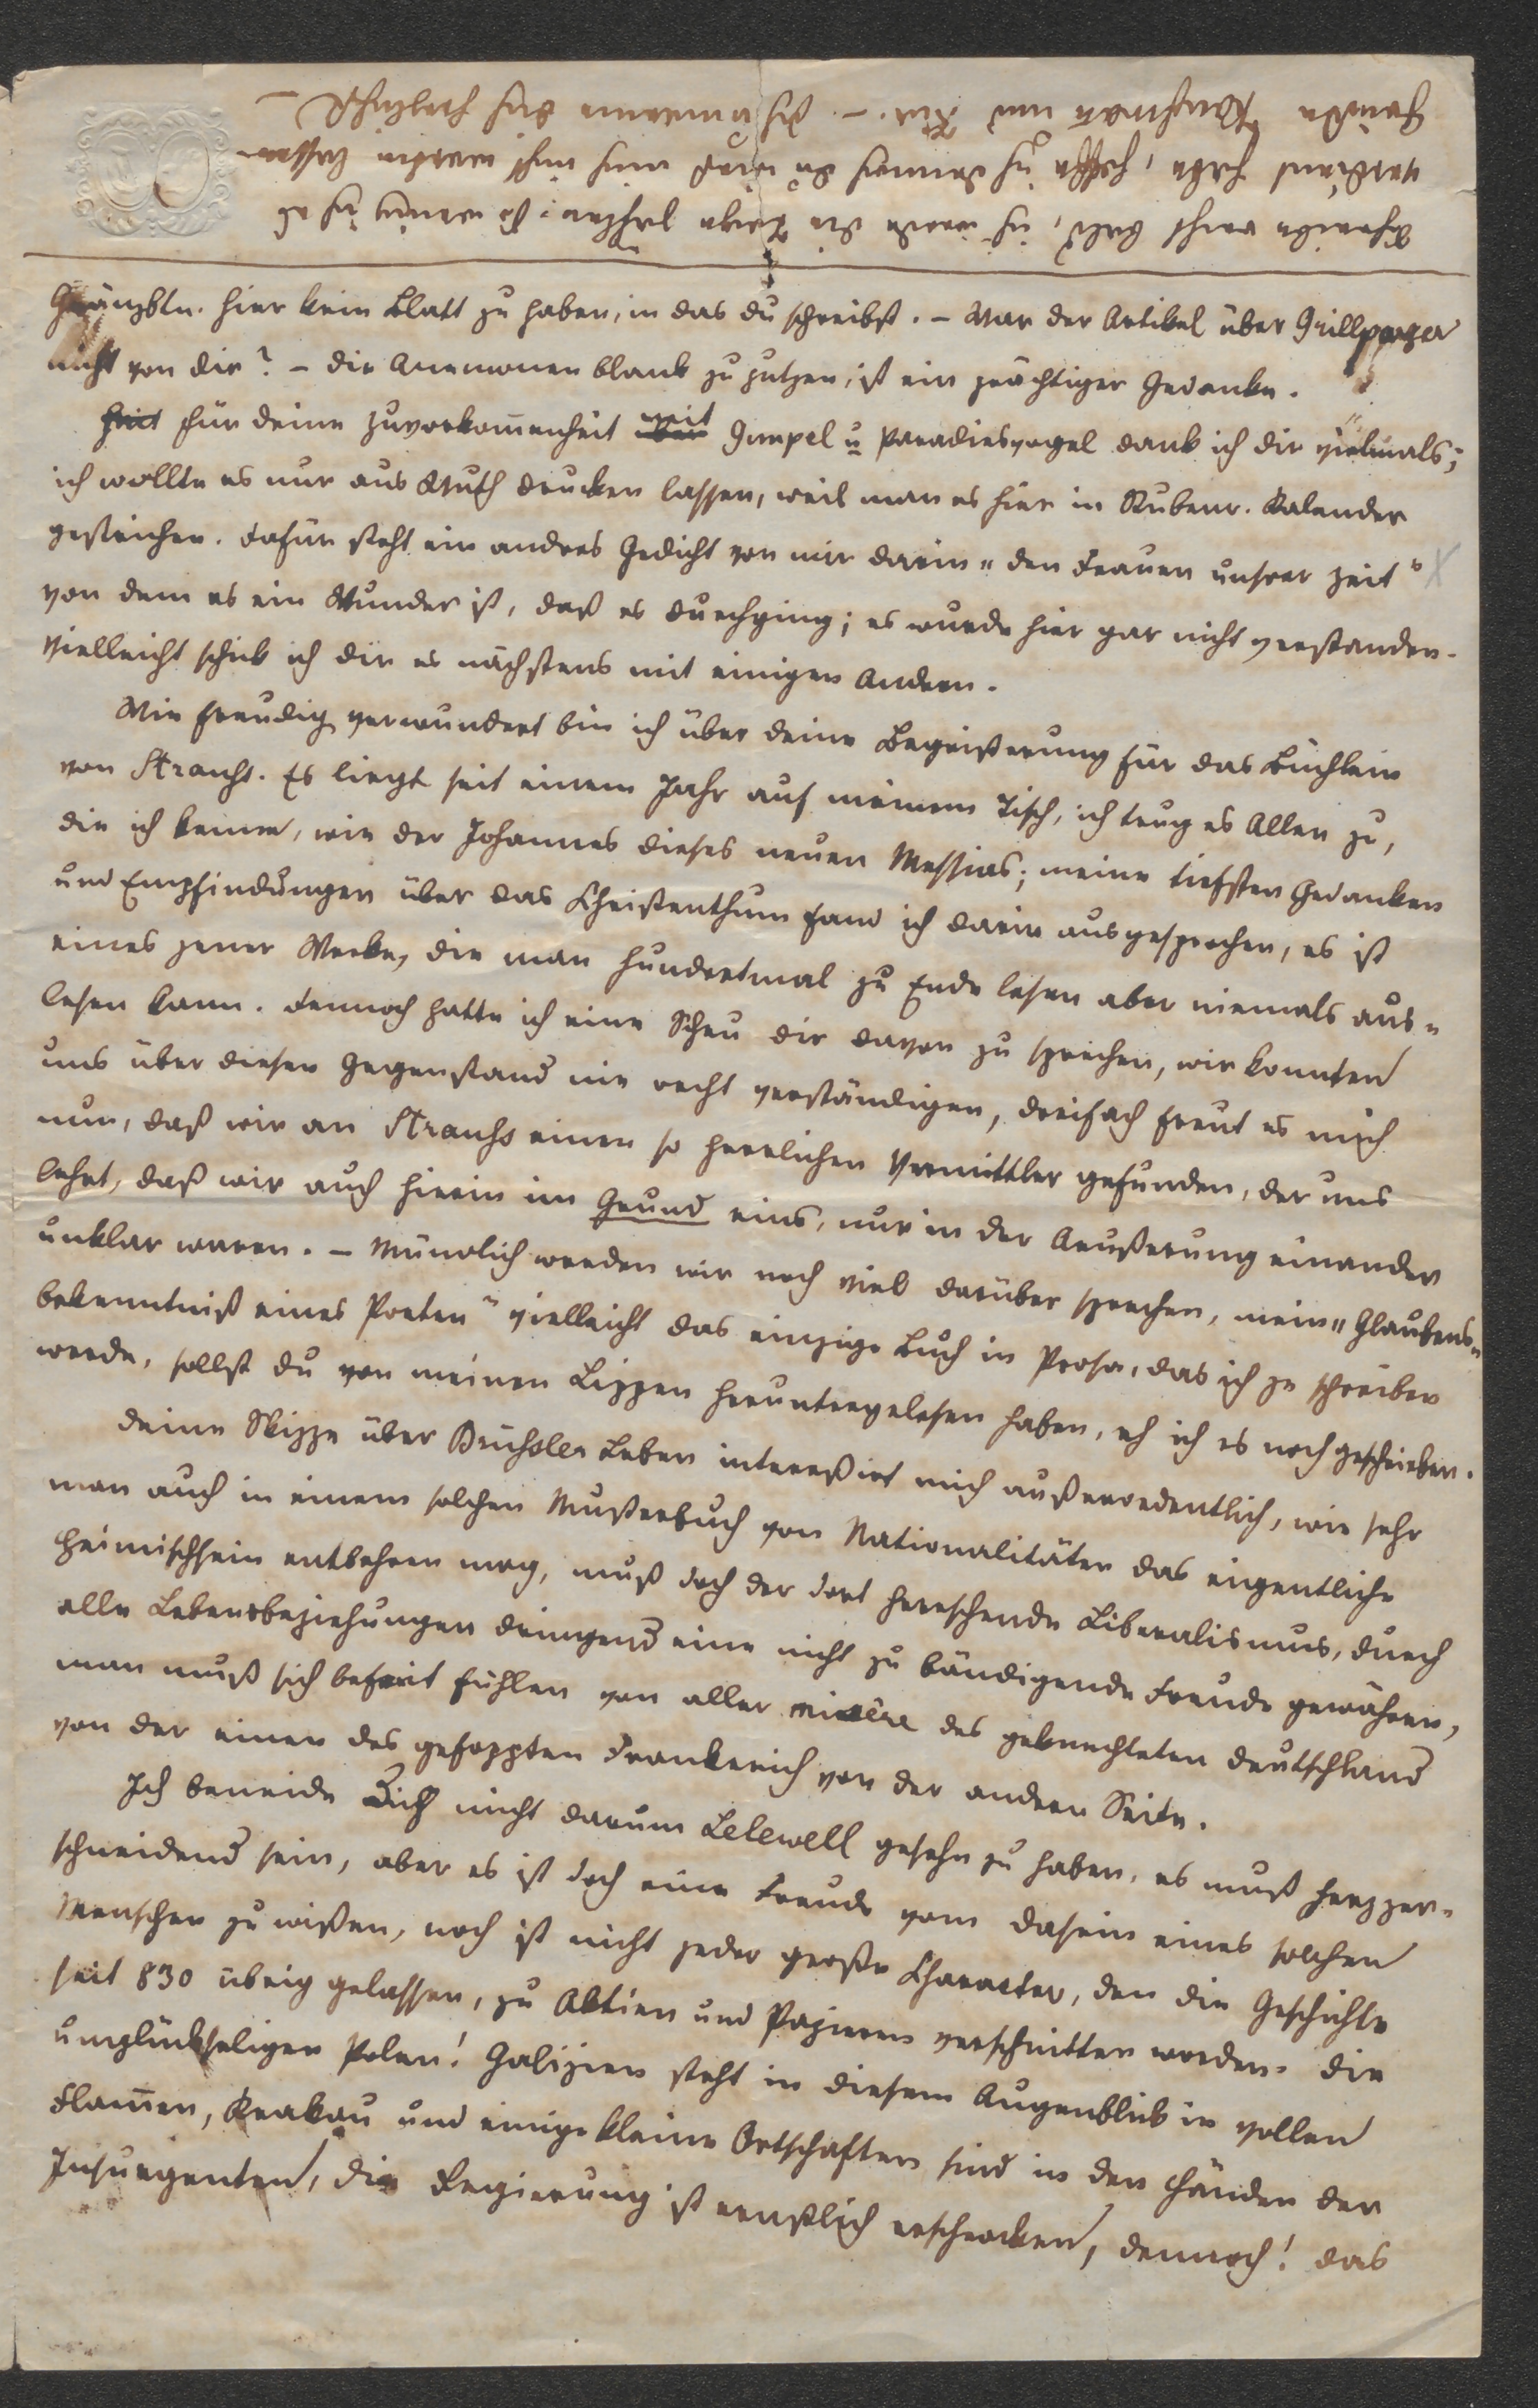 Schreibe recht bald, ich werde die Tage zählen; so wenig ich es
verdient habe, hoffe ich dennoch du wirst mich nicht warten lassen
Grüße Kaufmann und Frau. – Ich umarme dich herzlichst –
Gränzbtn. hier kein Blatt zu haben, in das du schreibst. – War der Artikel über Grillparzer
nicht von dir? – die Anemonen blank zu putzen, ist ein prächtiger Gedanke.
Für deine Zuvorkommenheit mit Gimpel u Paradiesvogel dank ich dir vielmals;
ich wollte es nur aus Wuth drucken lassen, weil man es hier in Rubenr. Kalender
gestrichen. Dafür steht ein andres Gedicht von mir darin „den Frauen unsrer Zeit“
von dem es ein Wunder ist, daß es durchging; es wurde hier gar nicht verstanden.
Vielleicht schick ich dir es nächstens mit einigen Andern.
Wie freudig verwundert bin ich über deine Begeisterung für das Büchlein
von Strauhs. Es liegt seit einem Jahr auf meinem Tisch, ich trug es Allen zu,
die ich kenne, wie der Johannes dieses neuen Messias; meine tiefsten Gedanken
und Empfindungen über das Christenthum fand ich darin ausgesprochen, es ist
eines jener Werke, die man hundertmal zu Ende lesen aber niemals aus-
lesen kann. Dennoch hatte ich eine Scheu dir davon zu sprechen, wir konnten
uns über diesen Gegenstand nie recht verständigen, dreifach freut es mich
nun, daß wir an Strauhs einen so herrlichen Vermittler gefunden, der uns
lehrt, daß wir auch hierin im Grund eins, nur in der Aeußerung einander
unklar waren. – Mündlich werden wir noch viel darüber sprechen, mein „Glaubens-
bekenntniß eines Poeten“ vielleicht das einzige Buch in Prosa, das ich je schreiben
werde, sollst du von meinen Lippen heruntergelesen haben, eh ich es noch geschrieben.
Deine Skizze über Brüssler Leben interessirt mich außerordentlich, wie sehr
man auch in einem solchen Musterbuch von Nationalitäten das eigentliche
Heimischsein entbehren mag, muß doch der dort herrschende Liberalismus, durch
alle Lebensbeziehungen dringend eine nicht zu bändigende Freude gewähren,
man muß sich befreit fühlen von aller misère des geknechteten Deutschland
von der einen des gefoppten Frankreich von der andern Seite.
Ich beneide Dich nicht darum Lelewell gesehn zu haben, es muß herzzer-
schneidend sein, aber es ist doch eine Freude vom Dasein eines solchen
Menschen zu wißen, noch ist nicht jeder große Character, den die Geschichte
seit 830 übrig gelassen, zu Aktien und Papieren verschnitten worden. Die
unglückseligen Polen! Galizien steht in diesem Augenblick in vollen
Flammen, Krakau und einige kleine Ortschaften sind in den Händen der
Insurgenten, die Regierung ist ernstlich erschrocken, dennoch! das